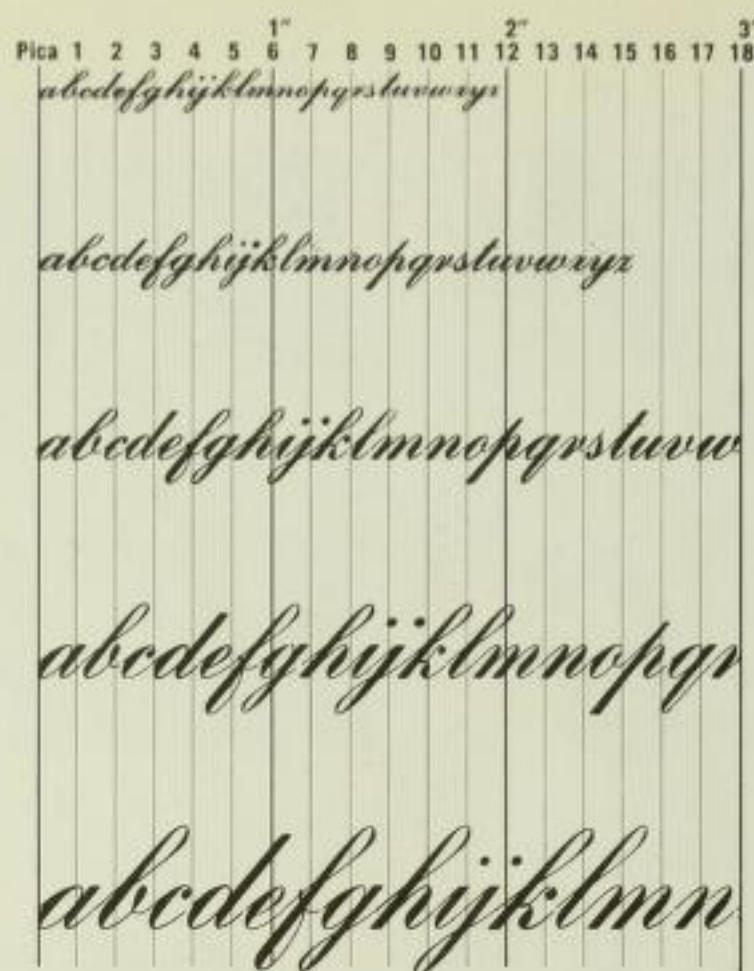 1" 2" 3"
Pica 1 2 3 4 5 6 7 8 9 10 11 12 13 14 15 16 17 18
abcdefghijklmnopqrstuvwxyz
abcdefghijklmnopqrstuvwxyz
abcdefghijklmnopqrstuvw
abcdefghijklmnopqr
abcdefghijklmn